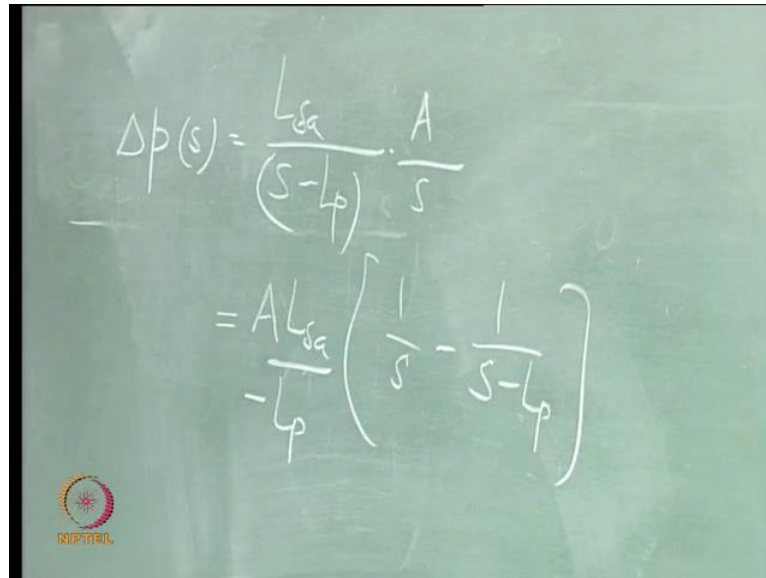 Δp(s) = L_δa / (S - L_p) · A / s
= A L_δa / -L_p ( 1/s - 1/(S - L_p) )
NPTEL